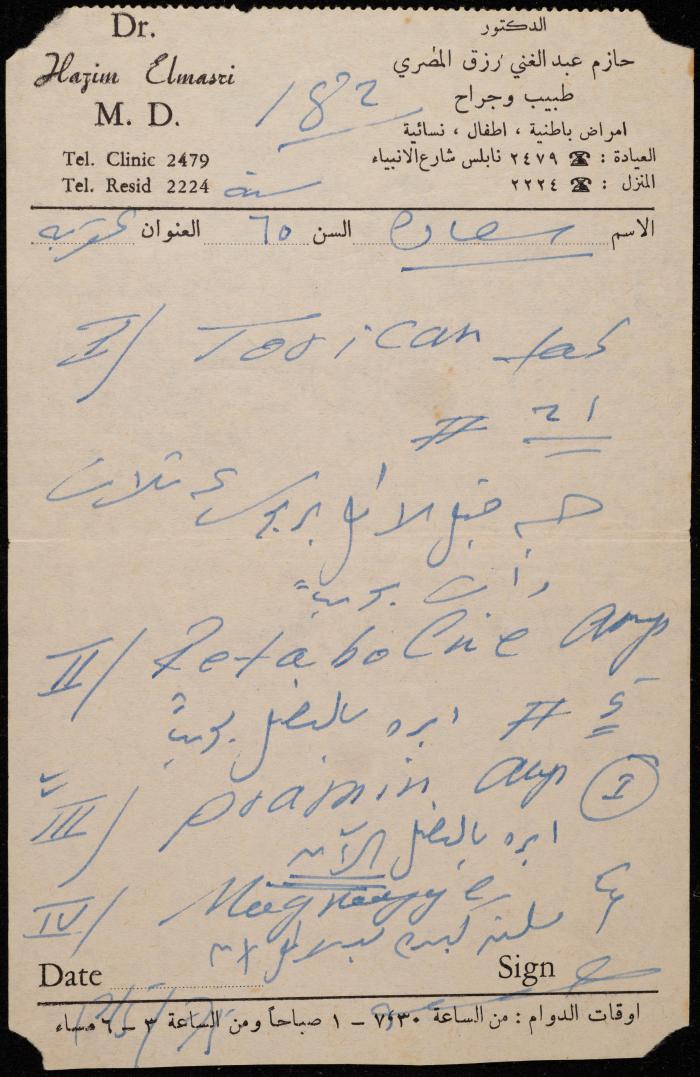 Dr.
Hazim Elmasri
M. D.
Tel. Clinic 2479
Tel. Resid 2224
الدكتور
حازم عبد الغني رزق المصري
طبيب وجراح
امراض باطنية ، اطفال ، نسائية
العيادة : ☎ ٢٤٧٩ نابلس شارع الانبياء
المنزل : ☎ ٢٢٢٤
182
سنة
الاسم سعاده السن ٦٥ العنوان
I/ Torican tab
# 21
حبه قبل الاكل ثلاث
يوميا
II/ Retaboline Amp
# ابره بالعضل
III/ Pramin Amp I
ابره بالعضل الآن
IV/
Date
Sign
اوقات الدوام : من الساعة ٧٫٣٠ – ١ صباحاً ومن الساعة ٣ – ٦ مساء